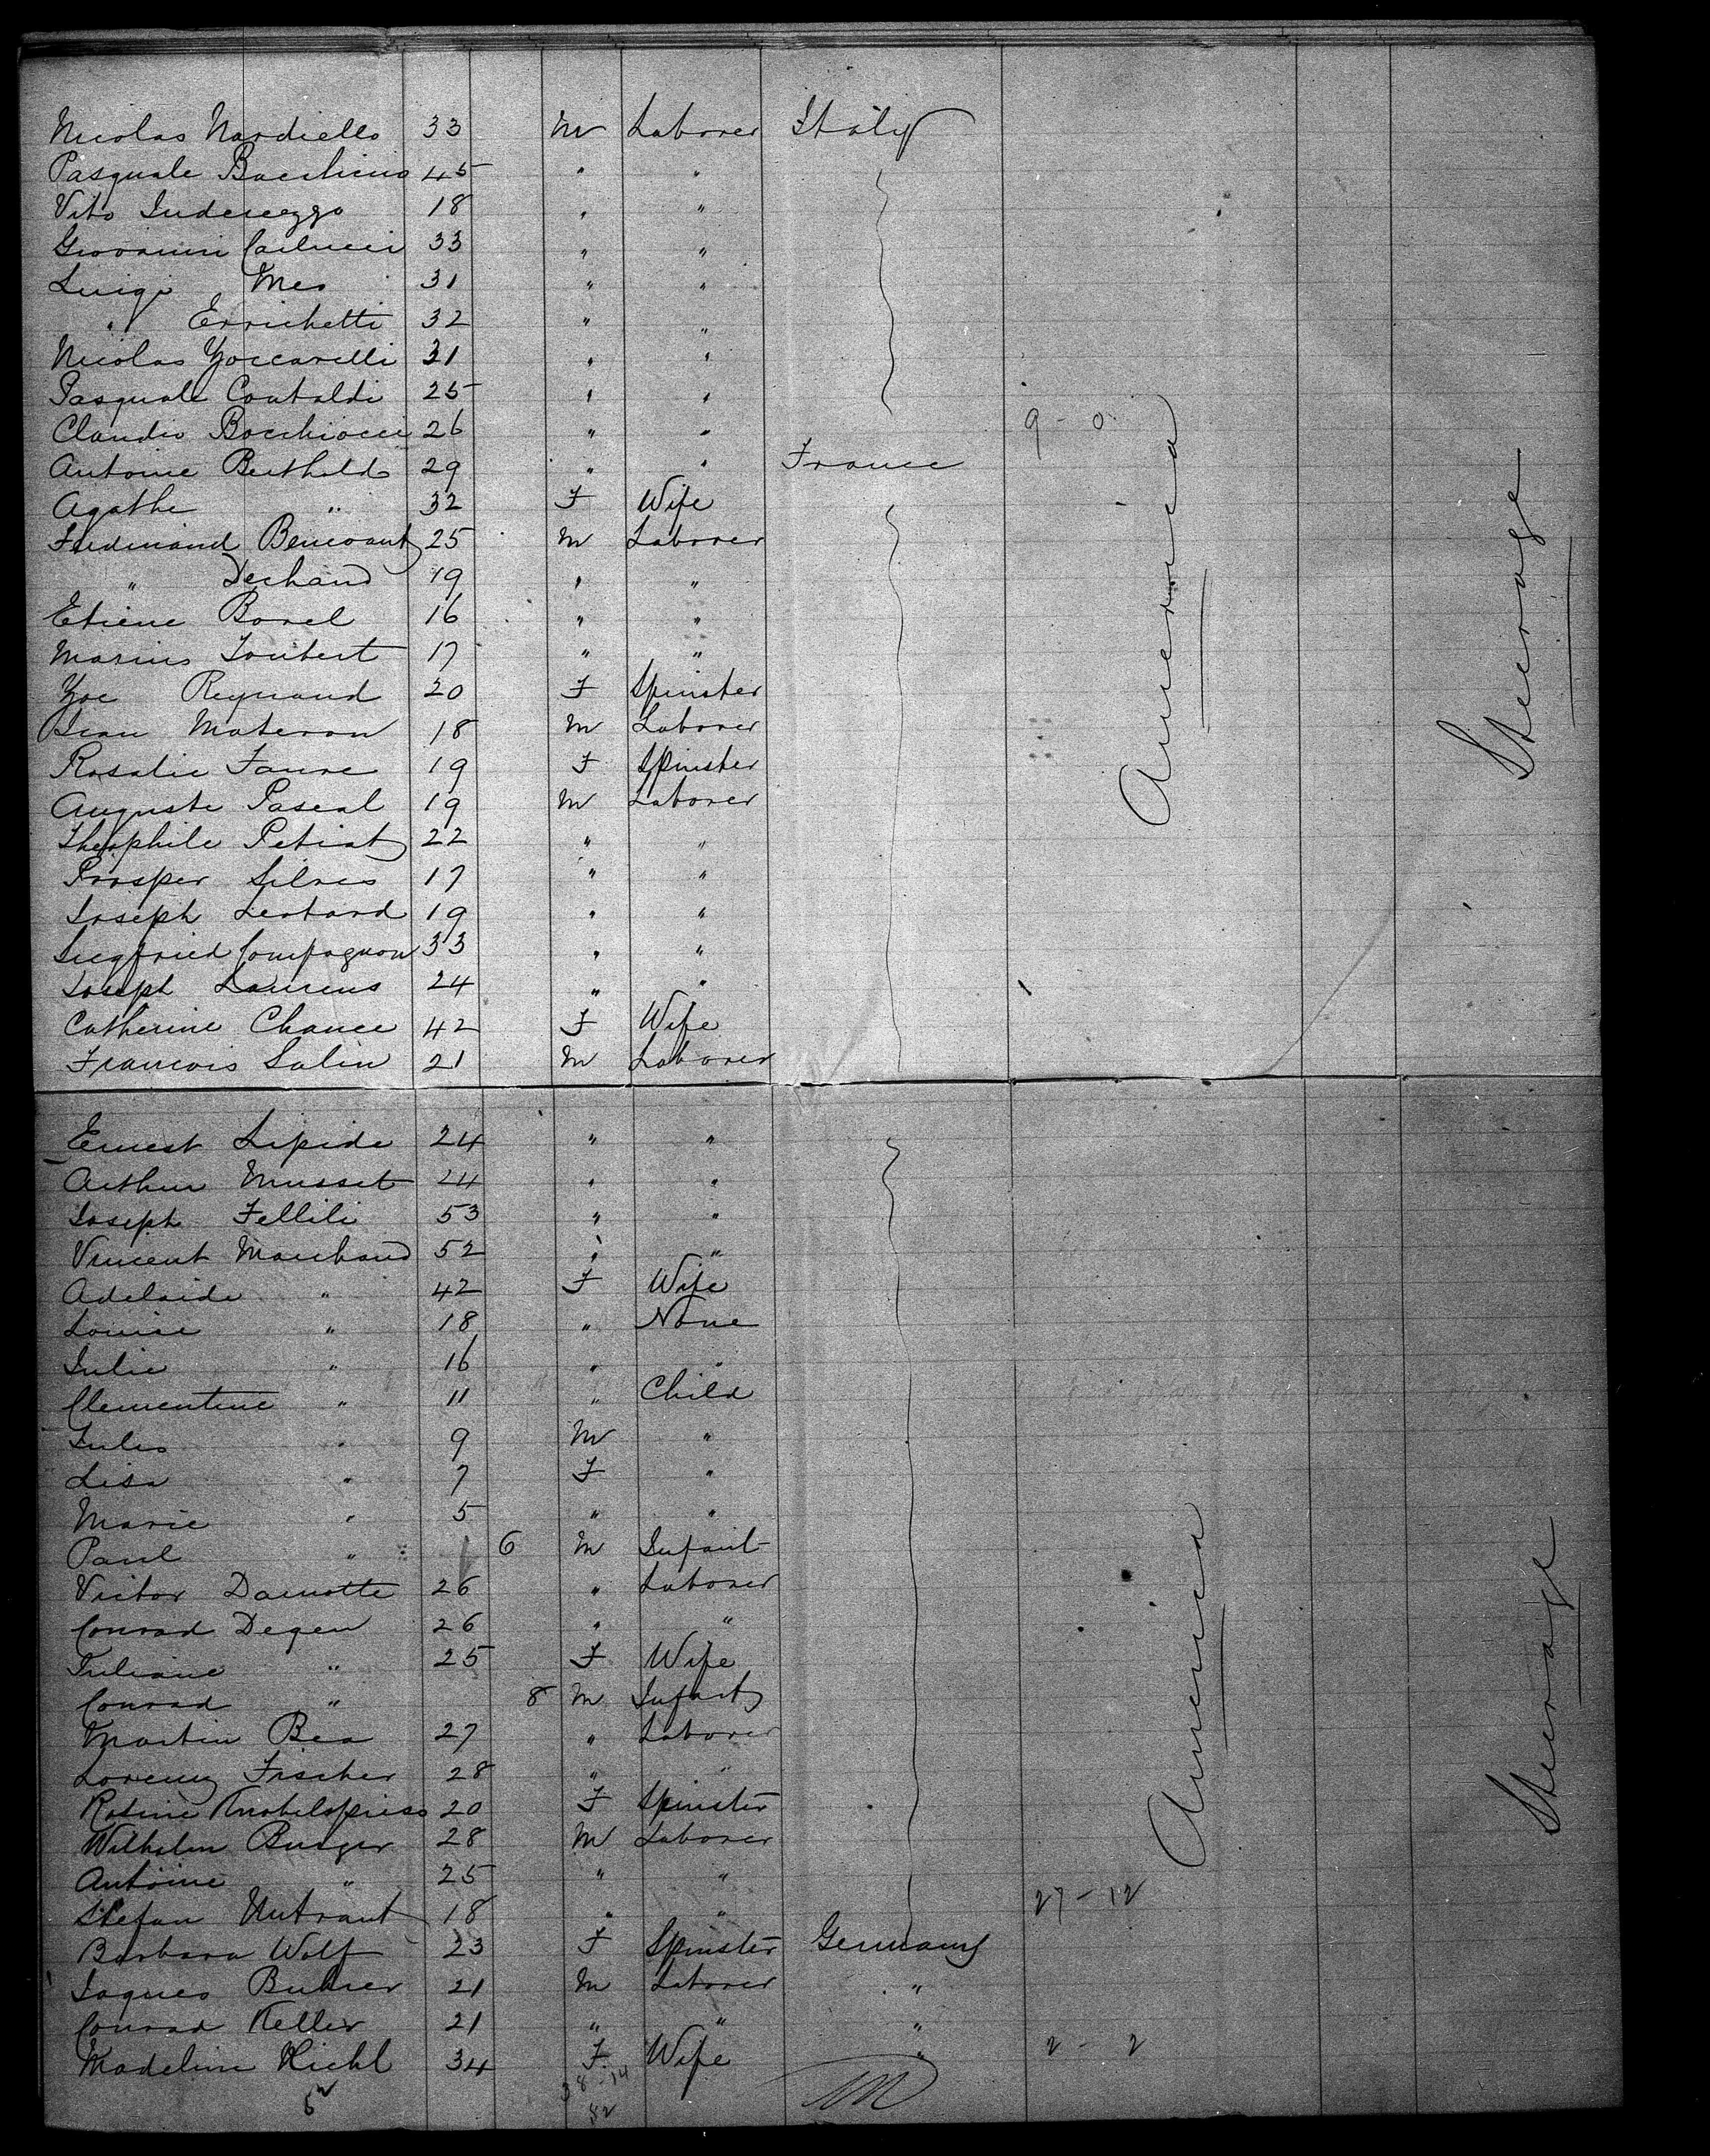 Nicolas Nardiello 33 M Laborer Italy
Pasquale 45 " "
Vito 18 " "
Giovanni Carlucci 33 " "
Luigi Meo 31 " "
" Errichetti 32 " "
Nicolas Zoccarelli 31 " "
Pasquale Contaldi 25 " "
Claudio Bocchiocci 26 " " 9 - 0
Antoine Berthold 29 " " France
Agathe " 32 F Wife
Ferdinand 25 M Laborer
" Dechand 19 " "
Etiene Borel 16 " "
Marius Joubert 17 " "
Zoe Reynaud 20 F Spinster
Jean Materon 18 M Laborer
Rosalie Faure 19 F Spinster
Auguste Pascal 19 M Laborer
Theophile Petiat 22 " "
Prosper Silves 17 " "
Joseph Leotard 19 " "
Siegfried Compagnon 33 " "
Joseph Laurens 24 " "
Catherine Chance 42 F Wife
Francois Salin 21 M Laborer
America
Steerage
Ernest Lipide 24 " "
Arthur Musset 24 " "
Joseph Fellili 53 " "
Vincent Marchand 52 " "
Adelaide " 42 F Wife
Louise " 18 " None
Julie " 16 " "
Clementine " 11 " Child
Jules " 9 M "
Lisa " 7 F "
Marie " 5 " "
Paul " 6 M Infant
Victor Damotte 26 " Laborer
Conrad Degen 26 " "
Juliane " 25 F Wife
Conrad " 8 M Infant
Martin Bea 27 " Laborer
Lorenz Fischer 28 " "
Rosine Knobelspiess 20 F Spinster
Wilhelm Burger 28 M Laborer
Antoine " 25 " "
Stefan Hutrant 18 " " 27 - 12
Barbara Wolf 23 F Spinster Germany
Jaques Buhrer 21 M Laborer "
Conrad Keller 21 " " "
Madeline Kiehl 34 F Wife " 2 - 2
America
Steerage
38 - 14
52